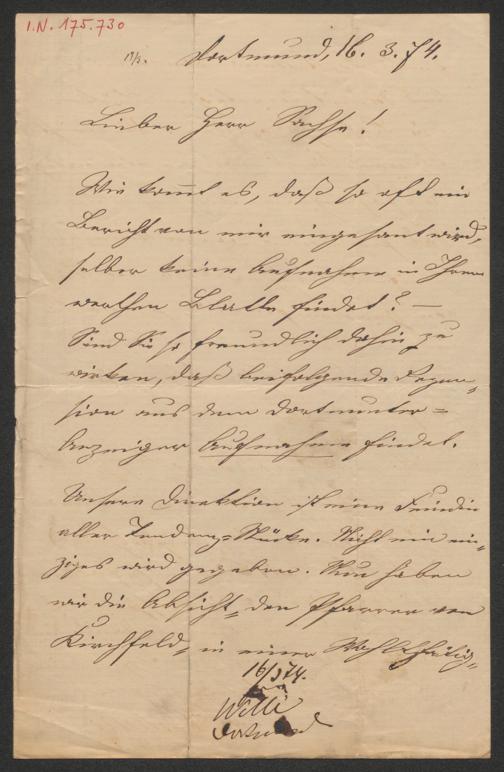 I.N. 175.730
19/3. Dortmund, 16. 3. 74.
Lieber Herr Sachse!
Wie kommt es, daß so oft ein
Bericht von mir eingesant wird,
selber keine Aufnahme in Ihrem
werthen Blatte findet? —
Sind Sie so freundlich dahin zu
wirken, daß beifolgende Rezen„
sion aus dem Dortmunter=
Anzeiger Aufnahme findet.
Unsere Direktion ist eine Feindin
aller Tendenz=Stücke. Nicht ein ein„
ziges wird gegeben. Nun haben
wir die Absicht, den Pfarrer von
Kirchfeld„ in einer Wohlthätig„
16/3 74.
Willi
Dortmund